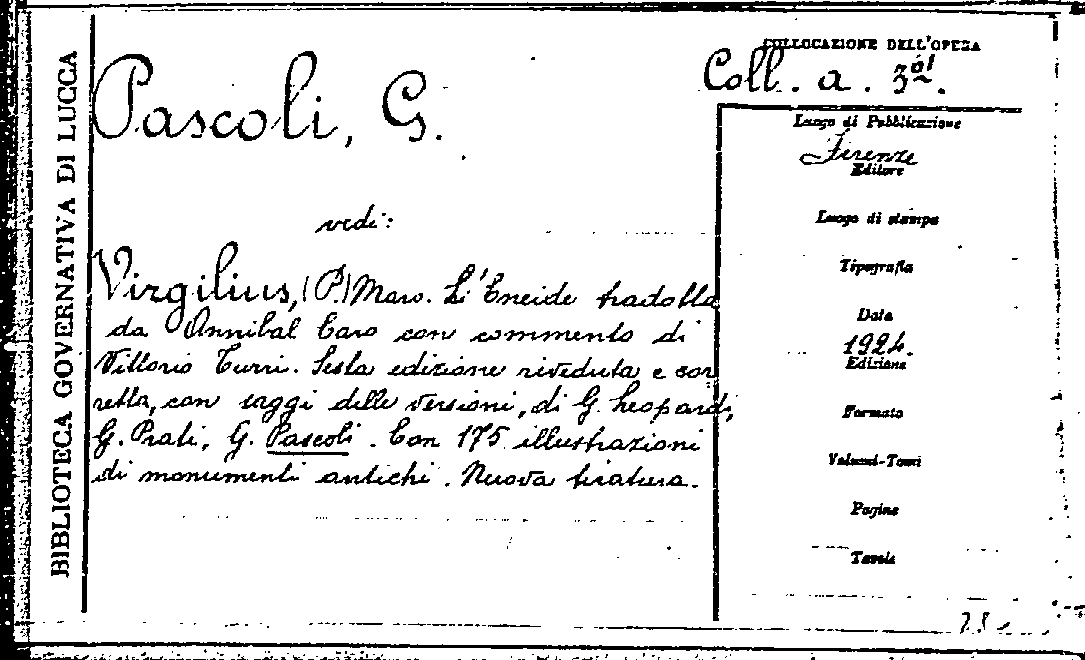 BIBLIOTECA GOVERNATIVA DI LUCCA
Pascoli, G.
vedi:
Virgilius, (P.) Maro. L'Eneide tradotta
da Annibal Caro con commento di
Vittorio Turri. Sesta edizione riveduta e cor
retta, con saggi delle versioni, di G. Leopardi,
G. Prati, G. Pascoli. Con 175 illustrazioni
di monumenti antichi. Nuova tiratura.
COLLOCAZIONE DELL'OPERA
Coll. a.
Luogo di Pubblicazione
Firenze
Editore
Luogo di stampa
Tipografia
Data
1924.
Edizione
Formato
Volumi-Tomi
Pagine
Tavole